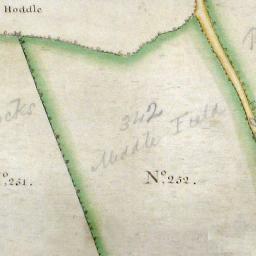 Hoddle
342
Middle Field
No. 251.
No. 252.